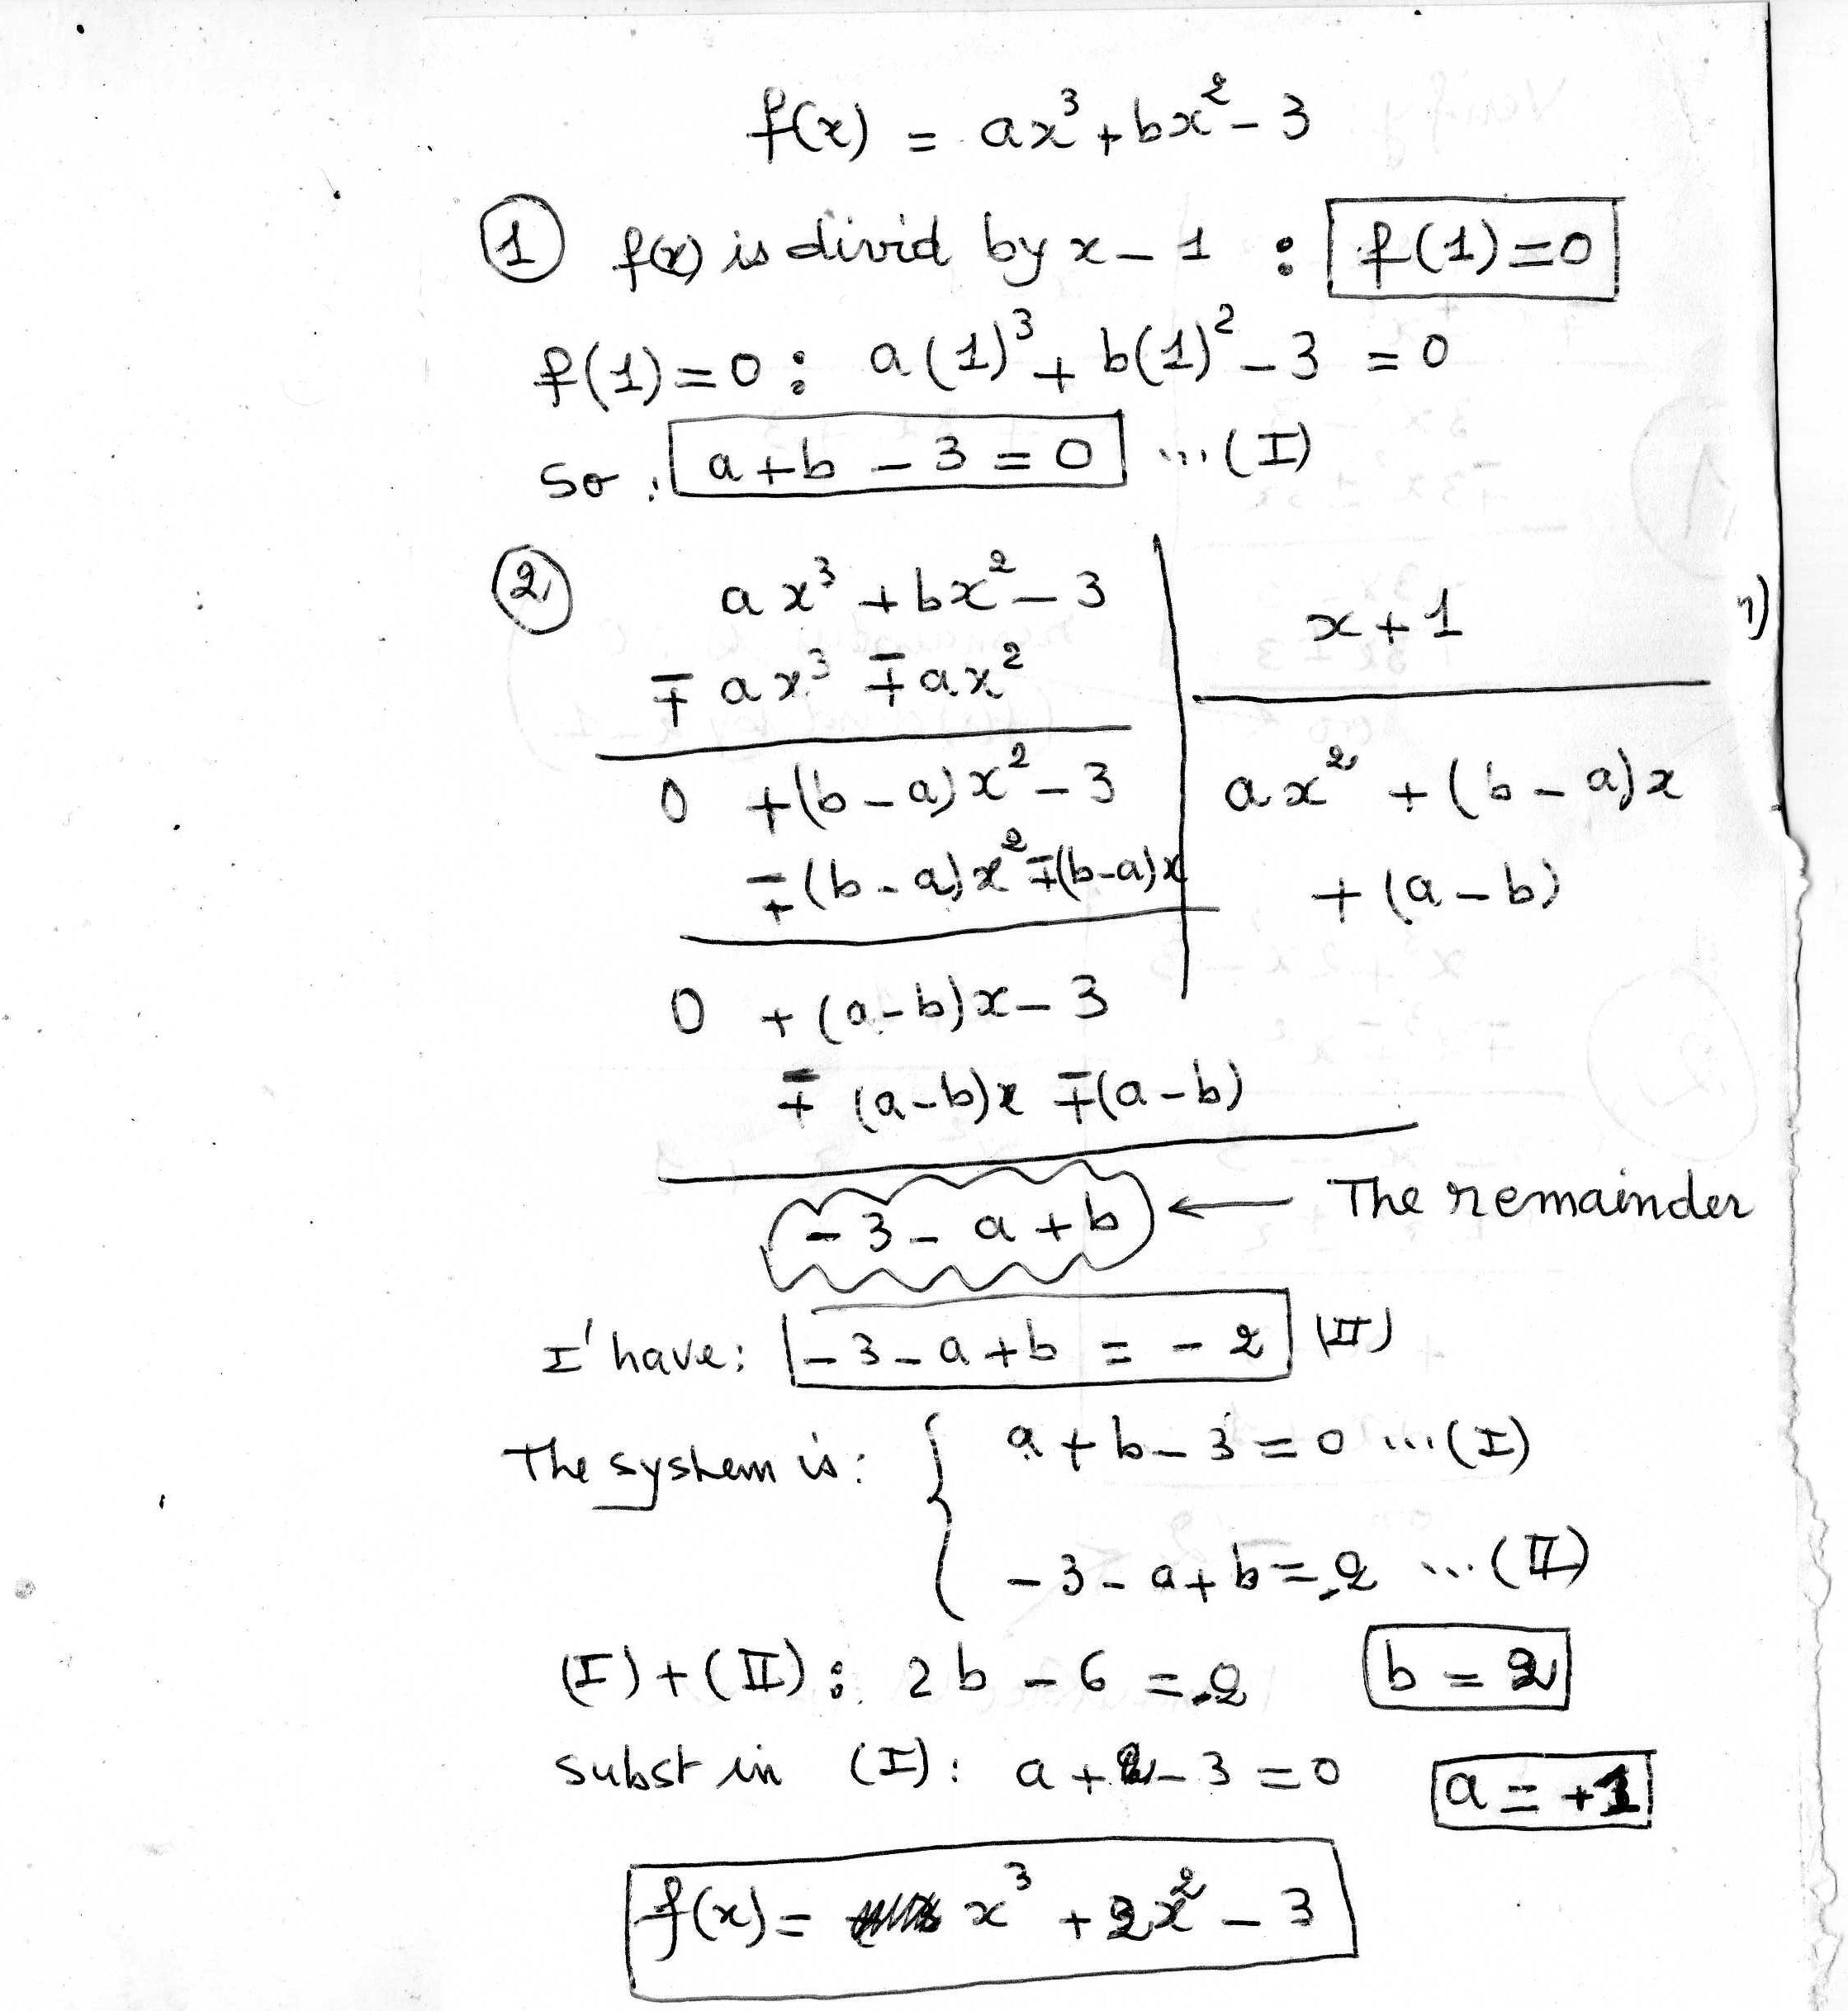 f(x) = ax³ + bx² - 3
① f(x) is divid by x - 1 : f(1) = 0
f(1) = 0 : a(1)³ + b(1)² - 3 = 0
So : a + b - 3 = 0 ... (I)
② ax³ + bx² - 3 | x + 1
∓ ax³ ∓ ax²
0 + (b - a)x² - 3 | ax² + (b - a)x
∓ (b - a)x² ∓ (b - a)x | + (a - b)
0 + (a - b)x - 3
∓ (a - b)x ∓ (a - b)
- 3 - a + b ← The remainder
I' have : - 3 - a + b = - 2 (II)
The system is : { a + b - 3 = 0 ... (I)
- 3 - a + b = -2 ... (II)
(I) + (II) : 2b - 6 = -2 b = 2
subst in (I) : a + 2 - 3 = 0 a = +1
f(x) = x³ + 2x² - 3